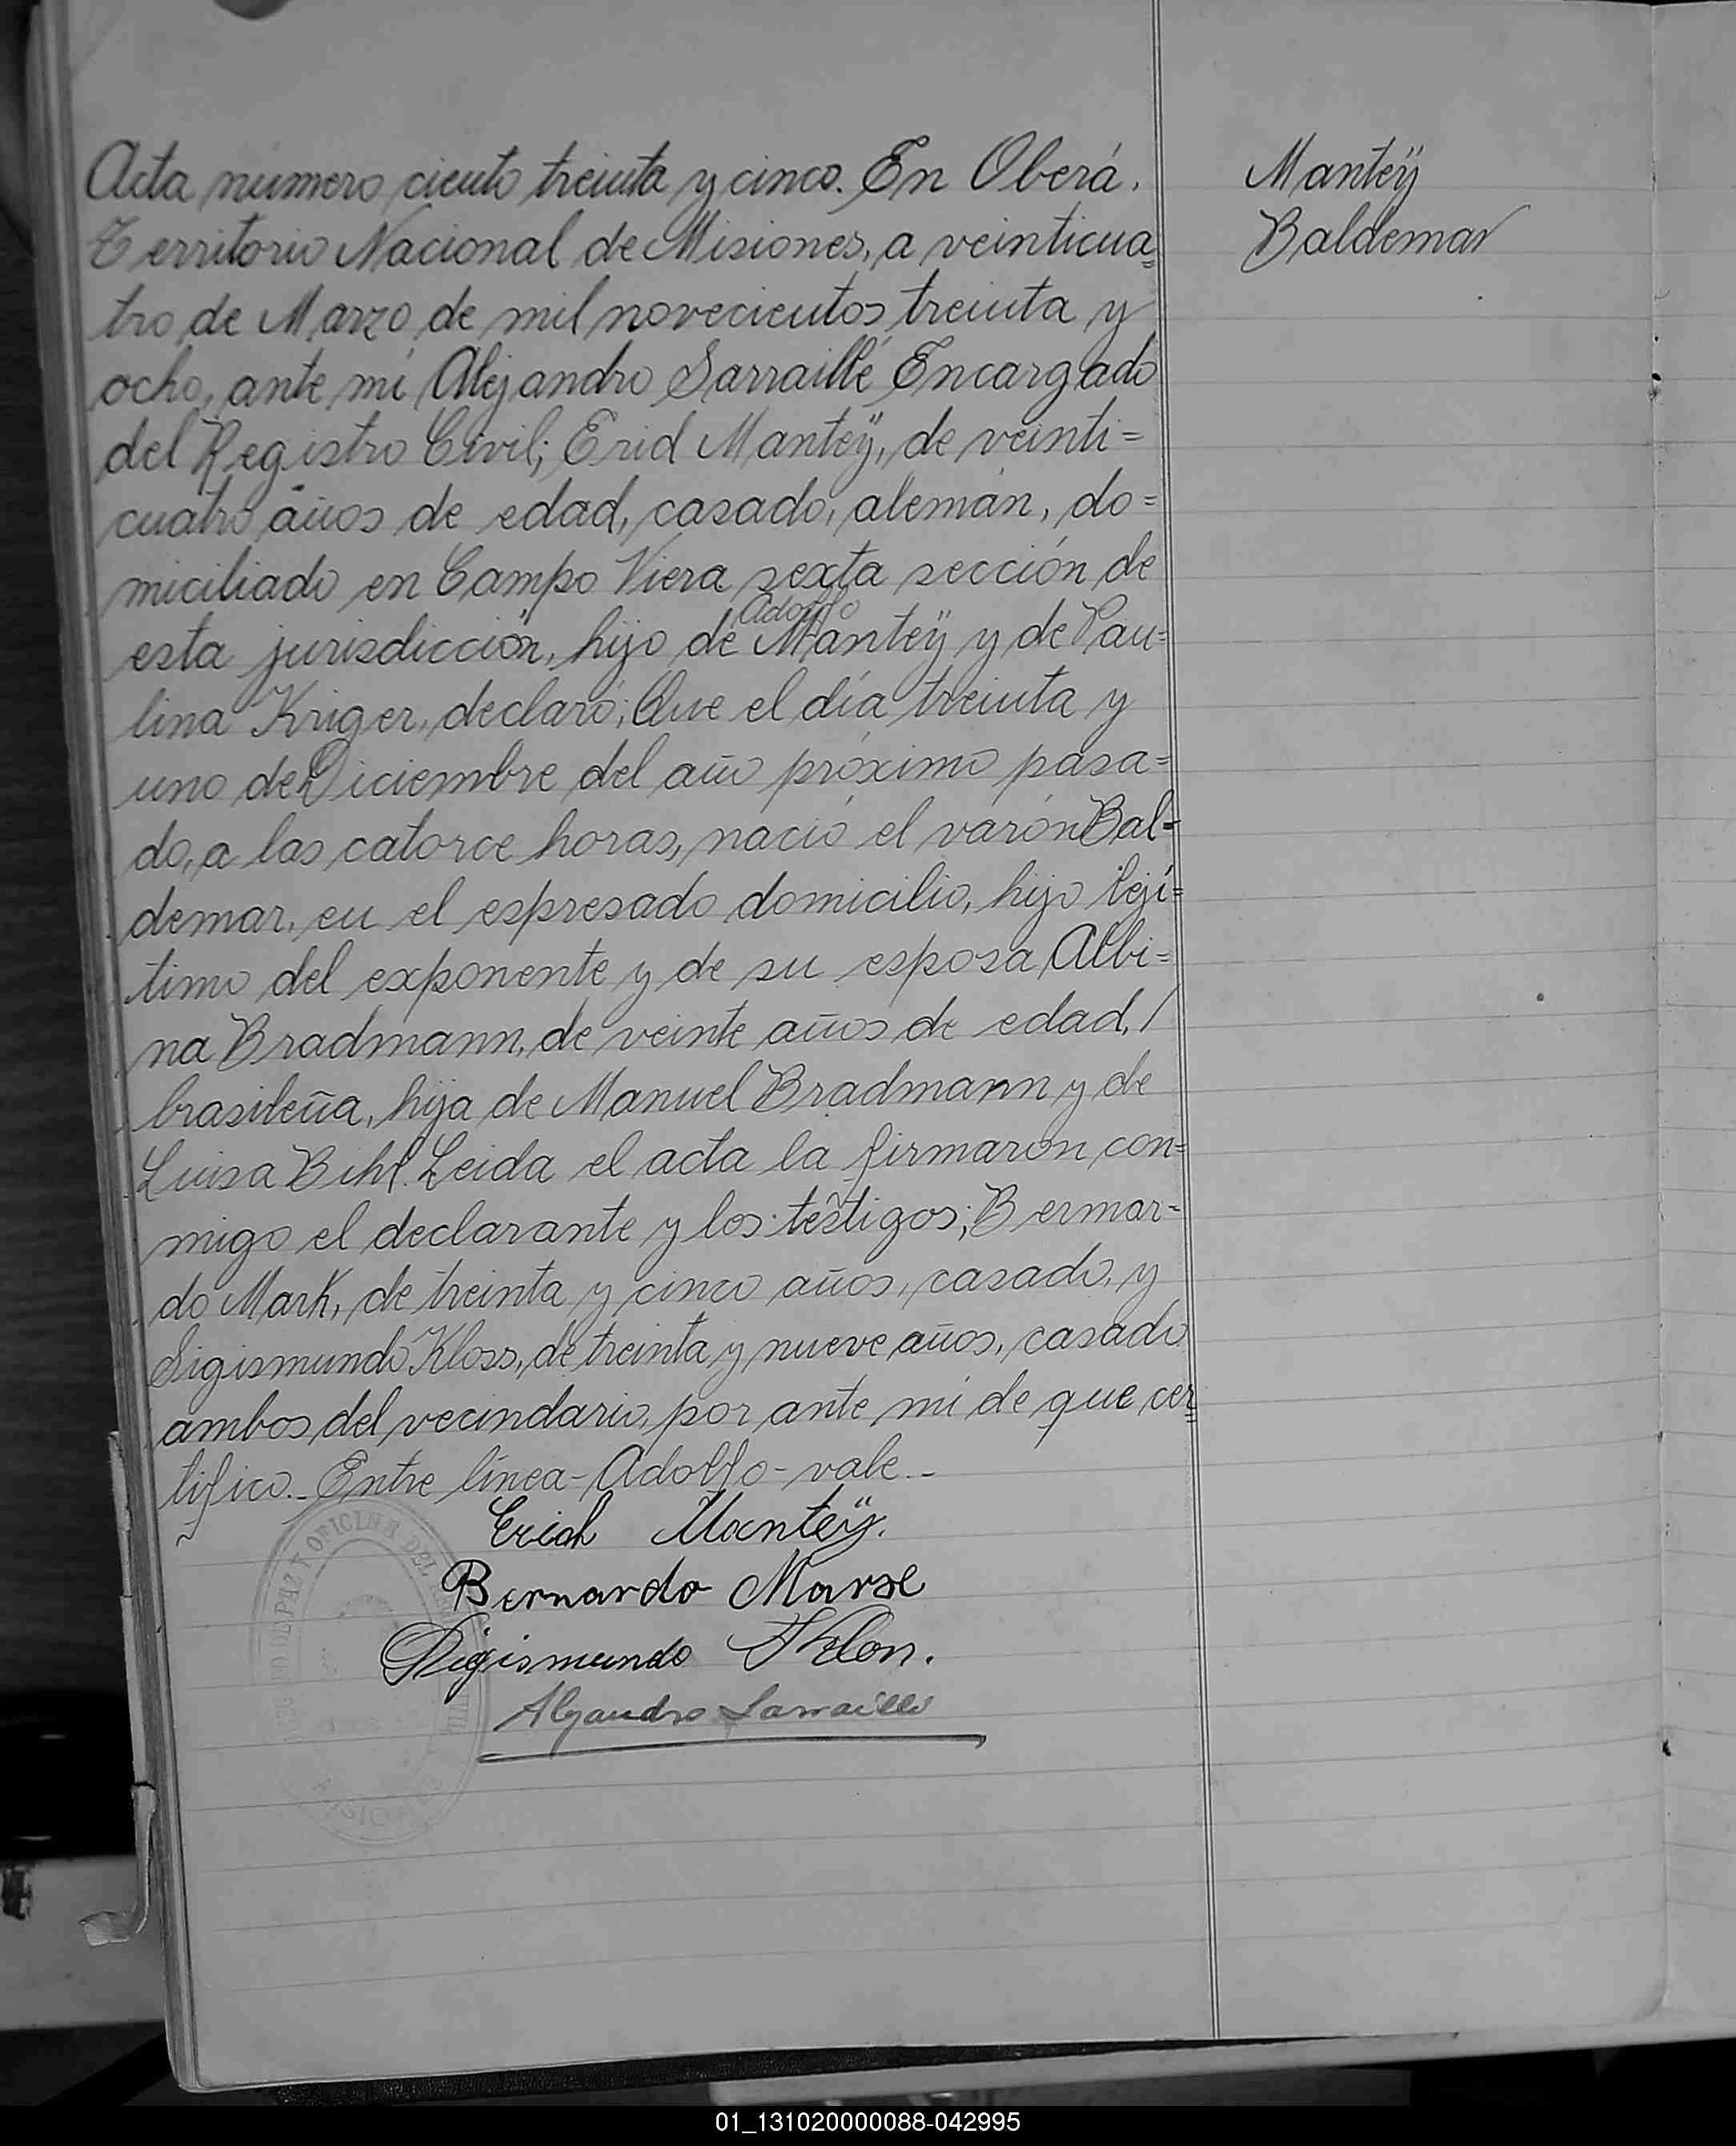 Acta numero ciento treinta y cinco. En Oberá.
Territorio Nacional de Misiones, a veinticua=
tro de Marzo de mil novecientos treinta y
ocho, ante mi Alejandro Sarraillé Encargado
del Registro Civil; Erid Manteÿ, de veinti=
cuatro años de edad, casado, alemán, do=
miciliado en Campo Viera sexta sección de
Adolfo
esta jurisdicción, hijo de Manteÿ y de Pau=
lina Kriger, declaró; Que el día treinta y
uno de Diciembre del año próximo pasa=
do, a las catorce horas, nació el varón Bal=
demar, en el espresado domicilio, hijo leji=
timo del exponente y de su esposa Albi=
na Bradmann, de veinte años de edad, /
brasileña, hija de Manuel Bradmann y de
Luisa Bihl. Leida el acta la firmaron con=
migo el declarante y los testigos; Bermar=
do Mark, de treinta y cinco años, casado, y
Sigismundo Kloss, de treinta y nueve años, casado
ambos del vecindario, por ante mi de que cer=
tifico.- Entre línea - Adolfo - vale.-
Erich Manteÿ.
Bernardo
Sigismundo
Alejandro Sarraillé
Manteÿ
Baldemar
OFICINA DEL
01_131020000088-042995